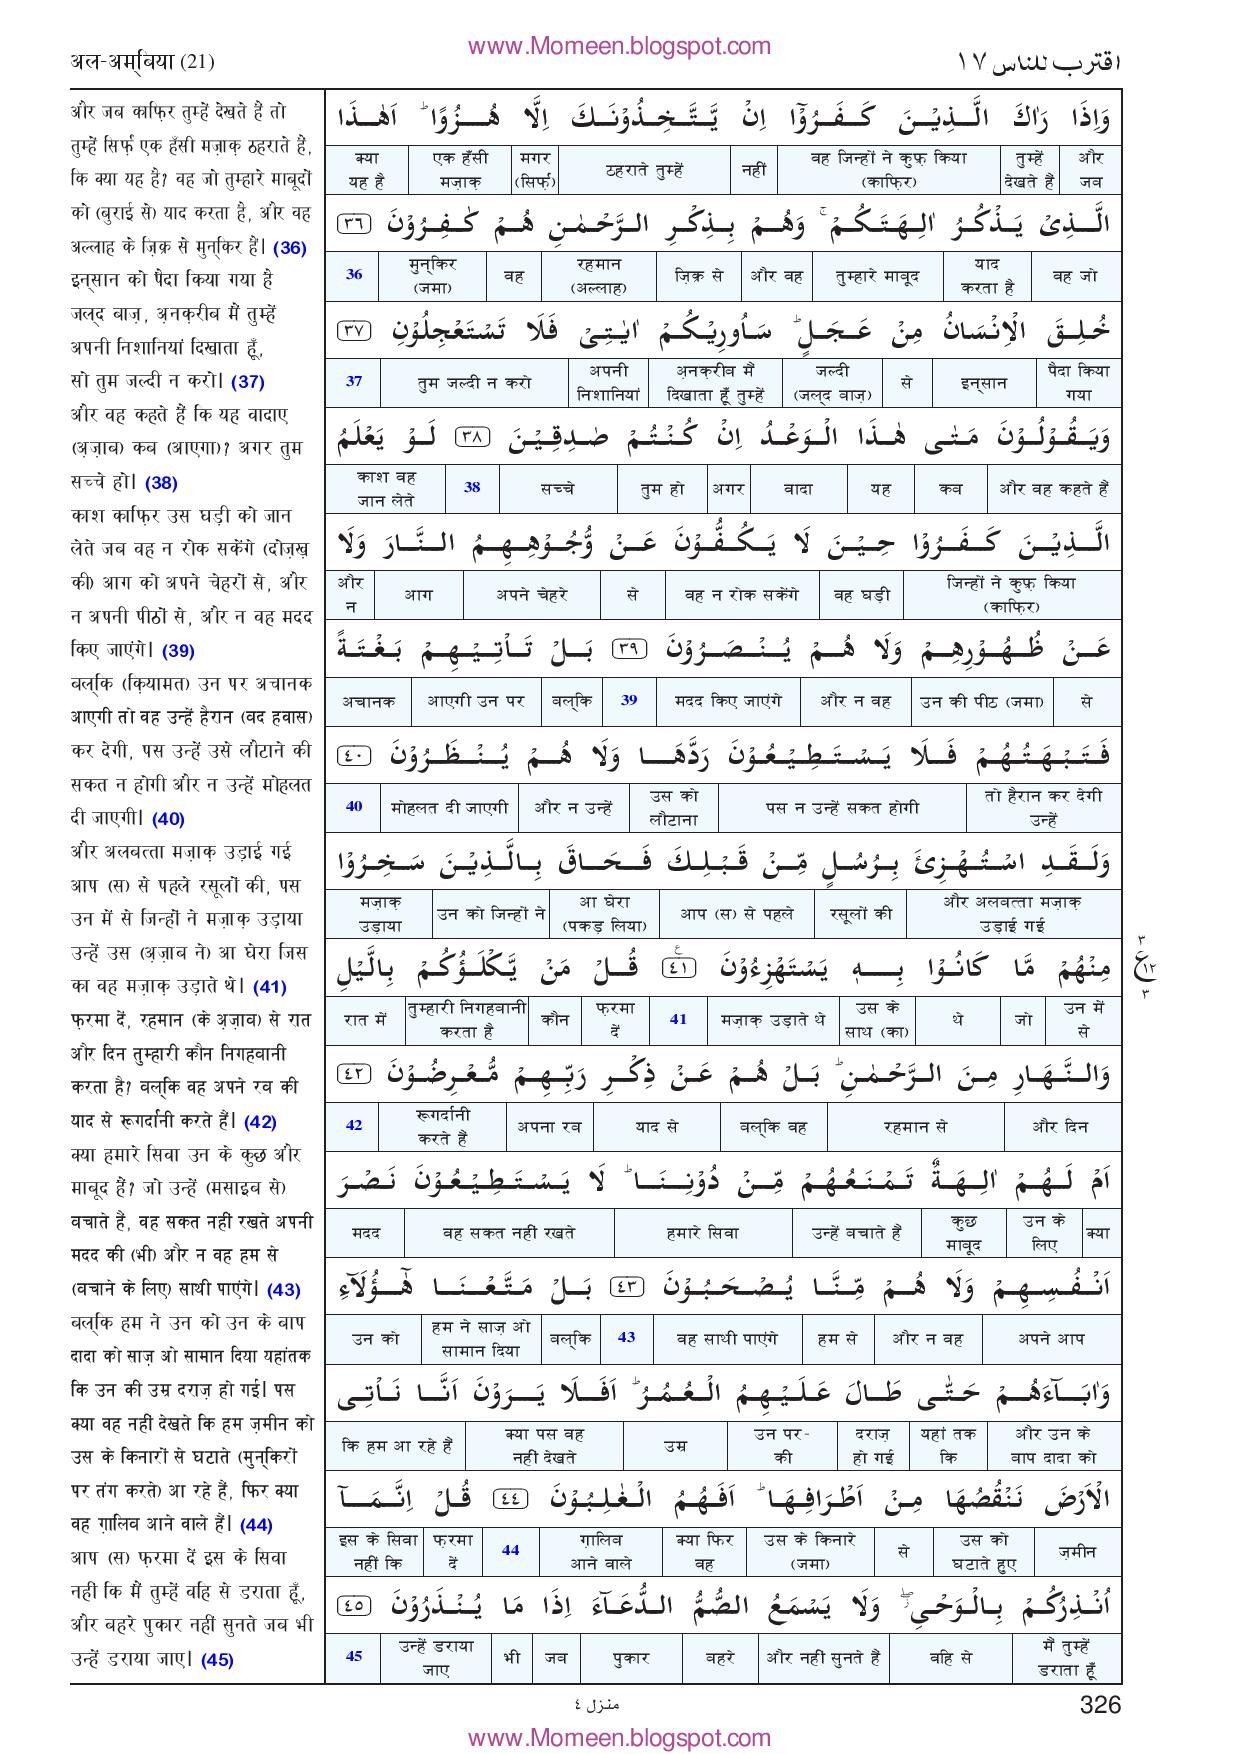 www.Momeen.blogspot.com
अल-अम्बिया (21)
اقترب للناس ١٧
और जब काफ़िर तुम्हें देखते हैं तो
तुम्हें सिर्फ़ एक हँसी मज़ाक़ ठहराते हैं,
कि क्या यह है? वह जो तुम्हारे माबूदों
को (बुराई से) याद करता है, और वह
अल्लाह के ज़िक्र से मुन्किर हैं। (36)
इन्सान को पैदा किया गया है
जल्द बाज़, अ़नक़रीब मैं तुम्हें
अपनी निशानियां दिखाता हूँ,
सो तुम जल्दी न करो। (37)
और वह कहते हैं कि यह वादाए
(अ़ज़ाब) कब (आएगा)? अगर तुम
सच्चे हो। (38)
काश काफ़िर उस घड़ी को जान
लेते जब वह न रोक सकेंगे (दोज़ख़
की) आग को अपने चेहरों से, और
न अपनी पीठों से, और न वह मदद
किए जाएंगे। (39)
बल्कि (क़ियामत) उन पर अचानक
आएगी तो वह उन्हें हैरान (बद हवास)
कर देगी, पस उन्हें उसे लौटाने की
सकत न होगी और न उन्हें मोहलत
दी जाएगी। (40)
और अलबत्ता मज़ाक़ उड़ाई गई
आप (स) से पहले रसूलों की, पस
उन में से जिन्हों ने मज़ाक़ उड़ाया
उन्हें उस (अ़ज़ाब ने) आ घेरा जिस
का वह मज़ाक़ उड़ाते थे। (41)
फ़रमा दें, रहमान (के अ़ज़ाब) से रात
और दिन तुम्हारी कौन निगहबानी
करता है? बल्कि वह अपने रब की
याद से रूगर्दानी करते हैं। (42)
क्या हमारे सिवा उन के कुछ और
माबूद हैं? जो उन्हें (मसाइब से)
बचाते हैं, वह सकत नहीं रखते अपनी
मदद की (भी) और न वह हम से
(बचाने के लिए) साथी पाएंगे। (43)
बल्कि हम ने उन को उन के बाप
दादा को साज़ ओ सामान दिया यहांतक
कि उन की उम्र दराज़ हो गई। पस
क्या वह नहीं देखते कि हम ज़मीन को
उस के किनारों से घटाते (मुन्किरों
पर तंग करते) आ रहे हैं, फिर क्या
वह ग़ालिब आने वाले हैं। (44)
आप (स) फ़रमा दें इस के सिवा
नहीं कि मैं तुम्हें वहि से डराता हूँ,
और बहरे पुकार नहीं सुनते जब भी
उन्हें डराया जाए। (45)
وَاِذَا رَاٰكَ الَّذِيْنَ كَفَرُوْٓا اِنْ يَّتَّخِذُوْنَكَ اِلَّا هُزُوًا ؕ اَهٰذَا
और जब | तुम्हें देखते हैं | वह जिन्हों ने कुफ़ किया (काफ़िर) | नहीं | ठहराते तुम्हें | मगर (सिर्फ़) | एक हँसी मज़ाक़ | क्या यह है
الَّذِيْ يَذْكُرُ اٰلِهَتَكُمْ ۚ وَهُمْ بِذِكْرِ الرَّحْمٰنِ هُمْ كٰفِرُوْنَ ٣٦
वह जो | याद करता है | तुम्हारे माबूद | और वह | ज़िक्र से | रहमान (अल्लाह) | वह | मुन्किर (जमा) | 36
خُلِقَ الْاِنْسَانُ مِنْ عَجَلٍ ؕ سَاُورِيْكُمْ اٰيٰتِيْ فَلَا تَسْتَعْجِلُوْنِ ٣٧
पैदा किया गया | इन्सान | से | जल्दी (जल्द बाज़) | अ़नक़रीब मैं दिखाता हूँ तुम्हें | अपनी निशानियां | तुम जल्दी न करो | 37
وَيَقُوْلُوْنَ مَتٰى هٰذَا الْوَعْدُ اِنْ كُنْتُمْ صٰدِقِيْنَ ٣٨ لَوْ يَعْلَمُ
और वह कहते हैं | कब | यह | वादा | अगर | तुम हो | सच्चे | 38 | काश वह जान लेते
الَّذِيْنَ كَفَرُوْا حِيْنَ لَا يَكُفُّوْنَ عَنْ وُّجُوْهِهِمُ النَّارَ وَلَا
जिन्हों ने कुफ़ किया (काफ़िर) | वह घड़ी | वह न रोक सकेंगे | से | अपने चेहरे | आग | और न
عَنْ ظُهُوْرِهِمْ وَلَا هُمْ يُنْصَرُوْنَ ٣٩ بَلْ تَاْتِيْهِمْ بَغْتَةً
से | उन की पीठ (जमा) | और न वह | मदद किए जाएंगे | 39 | बल्कि | आएगी उन पर | अचानक
فَتَبْهَتُهُمْ فَلَا يَسْتَطِيْعُوْنَ رَدَّهَا وَلَا هُمْ يُنْظَرُوْنَ ٤٠
तो हैरान कर देगी उन्हें | पस न उन्हें सकत होगी | उस को लौटाना | और न उन्हें | मोहलत दी जाएगी | 40
وَلَقَدِ اسْتُهْزِئَ بِرُسُلٍ مِّنْ قَبْلِكَ فَحَاقَ بِالَّذِيْنَ سَخِرُوْا
और अलबत्ता मज़ाक़ उड़ाई गई | रसूलों की | आप (स) से पहले | आ घेरा (पकड़ लिया) | उन को जिन्हों ने | मज़ाक़ उड़ाया
مِنْهُمْ مَّا كَانُوْا بِهٖ يَسْتَهْزِءُوْنَ ٤١ قُلْ مَنْ يَّكْلَؤُكُمْ بِالَّيْلِ
٣ ع ١٢ ٣
उन में से | जो | थे | उस के साथ (का) | मज़ाक़ उड़ाते थे | 41 | फ़रमा दें | कौन | तुम्हारी निगहबानी करता है | रात में
وَالنَّهَارِ مِنَ الرَّحْمٰنِ ؕ بَلْ هُمْ عَنْ ذِكْرِ رَبِّهِمْ مُّعْرِضُوْنَ ٤٢
और दिन | रहमान से | बल्कि वह | याद से | अपना रब | रूगर्दानी करते हैं | 42
اَمْ لَهُمْ اٰلِهَةٌ تَمْنَعُهُمْ مِّنْ دُوْنِنَا ؕ لَا يَسْتَطِيْعُوْنَ نَصْرَ
क्या | उन के लिए | कुछ माबूद | उन्हें बचाते हैं | हमारे सिवा | वह सकत नहीं रखते | मदद
اَنْفُسِهِمْ وَلَا هُمْ مِّنَّا يُصْحَبُوْنَ ٤٣ بَلْ مَتَّعْنَا هٰٓؤُلَآءِ
अपने आप | और न वह | हम से | वह साथी पाएंगे | 43 | बल्कि | हम ने साज़ ओ सामान दिया | उन को
وَاٰبَآءَهُمْ حَتّٰى طَالَ عَلَيْهِمُ الْعُمُرُ ؕ اَفَلَا يَرَوْنَ اَنَّا نَاْتِى
और उन के बाप दादा को | यहां तक कि | दराज़ हो गई | उन पर- की | उम्र | क्या पस वह नहीं देखते | कि हम आ रहे हैं
الْاَرْضَ نَنْقُصُهَا مِنْ اَطْرَافِهَا ؕ اَفَهُمُ الْغٰلِبُوْنَ ٤٤ قُلْ اِنَّمَآ
ज़मीन | उस को घटाते हुए | से | उस के किनारे (जमा) | क्या फिर वह | ग़ालिब आने वाले | 44 | फ़रमा दें | इस के सिवा नहीं कि
اُنْذِرُكُمْ بِالْوَحْيِ ۖ وَلَا يَسْمَعُ الصُّمُّ الدُّعَآءَ اِذَا مَا يُنْذَرُوْنَ ٤٥
मैं तुम्हें डराता हूँ | वहि से | और नहीं सुनते हैं | बहरे | पुकार | जब | भी | उन्हें डराया जाए | 45
منزل ٤
326
www.Momeen.blogspot.com